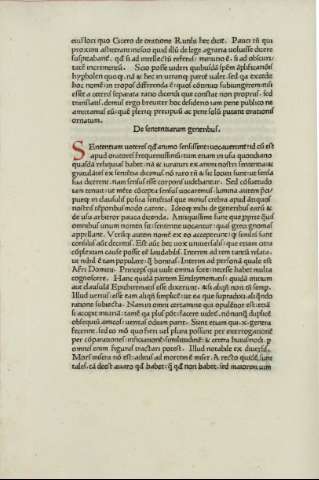 eius loci quo Cicero de oratione Rulli hec dicit. Pauci tamē qui
proximi astiterant nescio quid illū de lege agraria uoluisse dicere
suspicabant̄. qd̄ si ad intellectū referas: minutio ē. si ad obscuri
tatē incrementū. Scio posse uideri quibusdā spēm āplificatiōis
hypbolen quoq3. nā & hec in utranq3 partē ualet. sed qa excedit
hoc nomē: in tropos differenda ē: quos cōtinuo subiungerem: nisi
esset a ceteris separata ratio dicendi que constat non propriis. sed
translatis. demus ergo breuiter hoc desiderio iam pene publico ne
omittamus eū: quē pleriq3 precipuū ac pene solū putant orationis
ornatum.
De sententiarum generibus.
SEntentiam ueteres qd̄ animo sensissent: uocauerunt: id cū est
apud oratores frequentissimū: tum etiam in usu quotidiano
quasdā reliquias habet. nā & iuraturi ex animi nostri sententia: &
gratulātes ex sententia dicimus. nō raro tn̄ & sic locuti sunt: ut sensa
sua dicerent. nam sensus esse corporis uidebantur. Sed cōsuetudo
iam tenuit: ut mēte cōcepta sensus uocaremus. lumina autem
in clausulis posita sententias que minus crebra apud antiquos
nostris tēporibus modo carent. Ideoq3 mihi de generibus eorū &
de usu arbitror pauca dicenda. Antiquissime sunt que proprie qūis
omnibus unum nomen sit: sententie uocantur: quas greci gnomas
appellant. Vtrūq3 autem nomē ex eo acceperunt: qd̄ similes sunt
consiliis aut decretis. Est autē hec uox uniuersalis: que etiam citra
cōplexum cause possit eē laudabilis. Interim ad rem tantū relata:
ut nihil ē tam populare: q̄ bonitas. Interim ad personā: quale est
Afri Domitii. Princeps qui uult omnia scire: necesse habet multa
ignoscere. Hanc quidā partem Enthymematis: quidā initium
aut clausulā Epicherematis esse dixerunt. & ē aliqn̄ non tn̄ semp.
Illud uerius: esse eam aliqn̄ simplicē: ut ea que supra dixi: aliqn̄do
ratione subiecta. Nam in omni certamine qui opulētior est: etiā
si accipit iniuriā: tamē qa plus pōt: facere uidet̄. nōnunq̄ duplicē
obsequiū amicos: ueritas odium parit. Sunt etiam qui .x. genera
fecerint. sed eo mō quo fieri uel plura possint: per interrogationē:
per cōparationē: inficiationē: similitudinē: & cetera huiusmodi. p
omnes enim figuras tractari potest. Illud notabile ex diuersis.
Mors misera nō est: aditus ad mortem ē miser. Ac recto quidē sunt
tales. tā deest auaro qd̄ habet: q̄ qd̄ non habet. sed maiorem uim